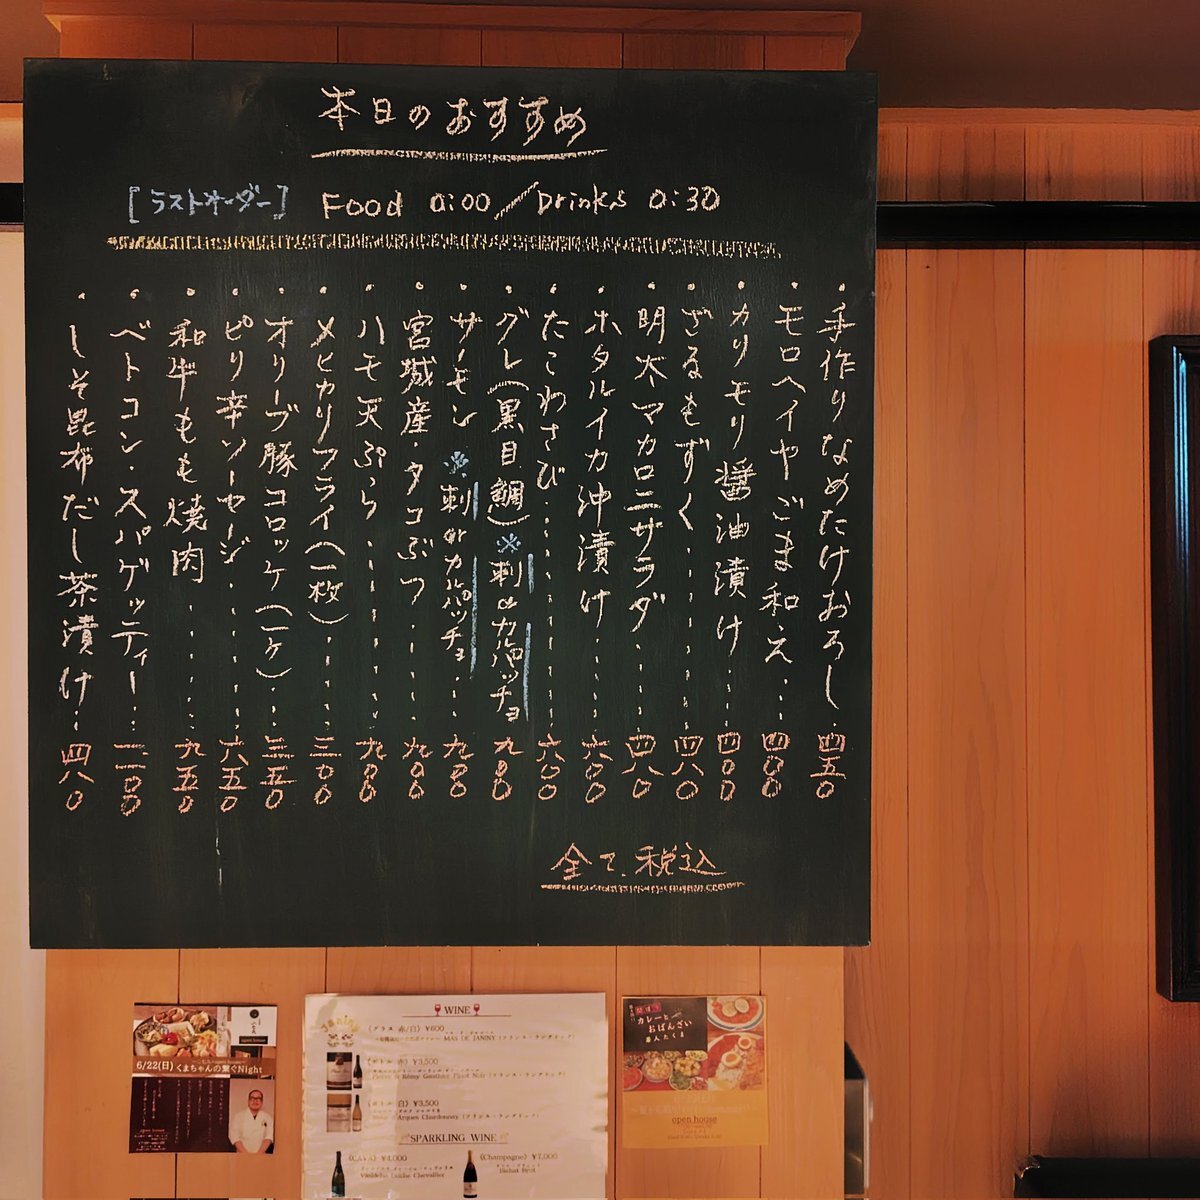 本日のおすすめ
[ラストオーダー] Food 0:00/Drinks 0:30
・手作りなめたけおろし‥四五〇
・モロヘイヤごま和え‥‥四〇〇
・カリモリ醤油漬け‥‥四〇〇
・ざるもずく‥‥‥‥四八〇
・明太マカロニサラダ‥‥‥四八〇
・ホタルイカ沖漬け‥‥‥六〇〇
・たこわさび‥‥‥‥六〇〇
・グレ(黒目鯛)※刺orカルパッチョ 九〇〇
・サーモン ※刺orカルパッチョ‥九〇〇
・宮城産・タコぶつ‥‥‥九〇〇
・ハモ天ぷら‥‥‥‥九〇〇
・メヒカリフライ(一枚)‥‥三〇〇
・オリーブ豚コロッケ(一ヶ)‥三五〇
・ピリ辛ソーセージ‥‥‥六五〇
・和牛もも焼肉‥‥‥九五〇
・ベトコン・スパゲッティー‥一二〇〇
・しそ昆布だし茶漬け‥四八〇
全て税込
6/22(日) くまちゃんの繋ぐNight
WINE
Janiny
《グラス 赤/白》¥600
MAS DE JANINY (フランス・ラングドック)
《ボトル 赤》¥3,500
《ボトル 白》¥3,500
SPARKLING WINE
《CAVA》¥4,000
《Champagne》¥7,000
カレーと
おばんざい
open house